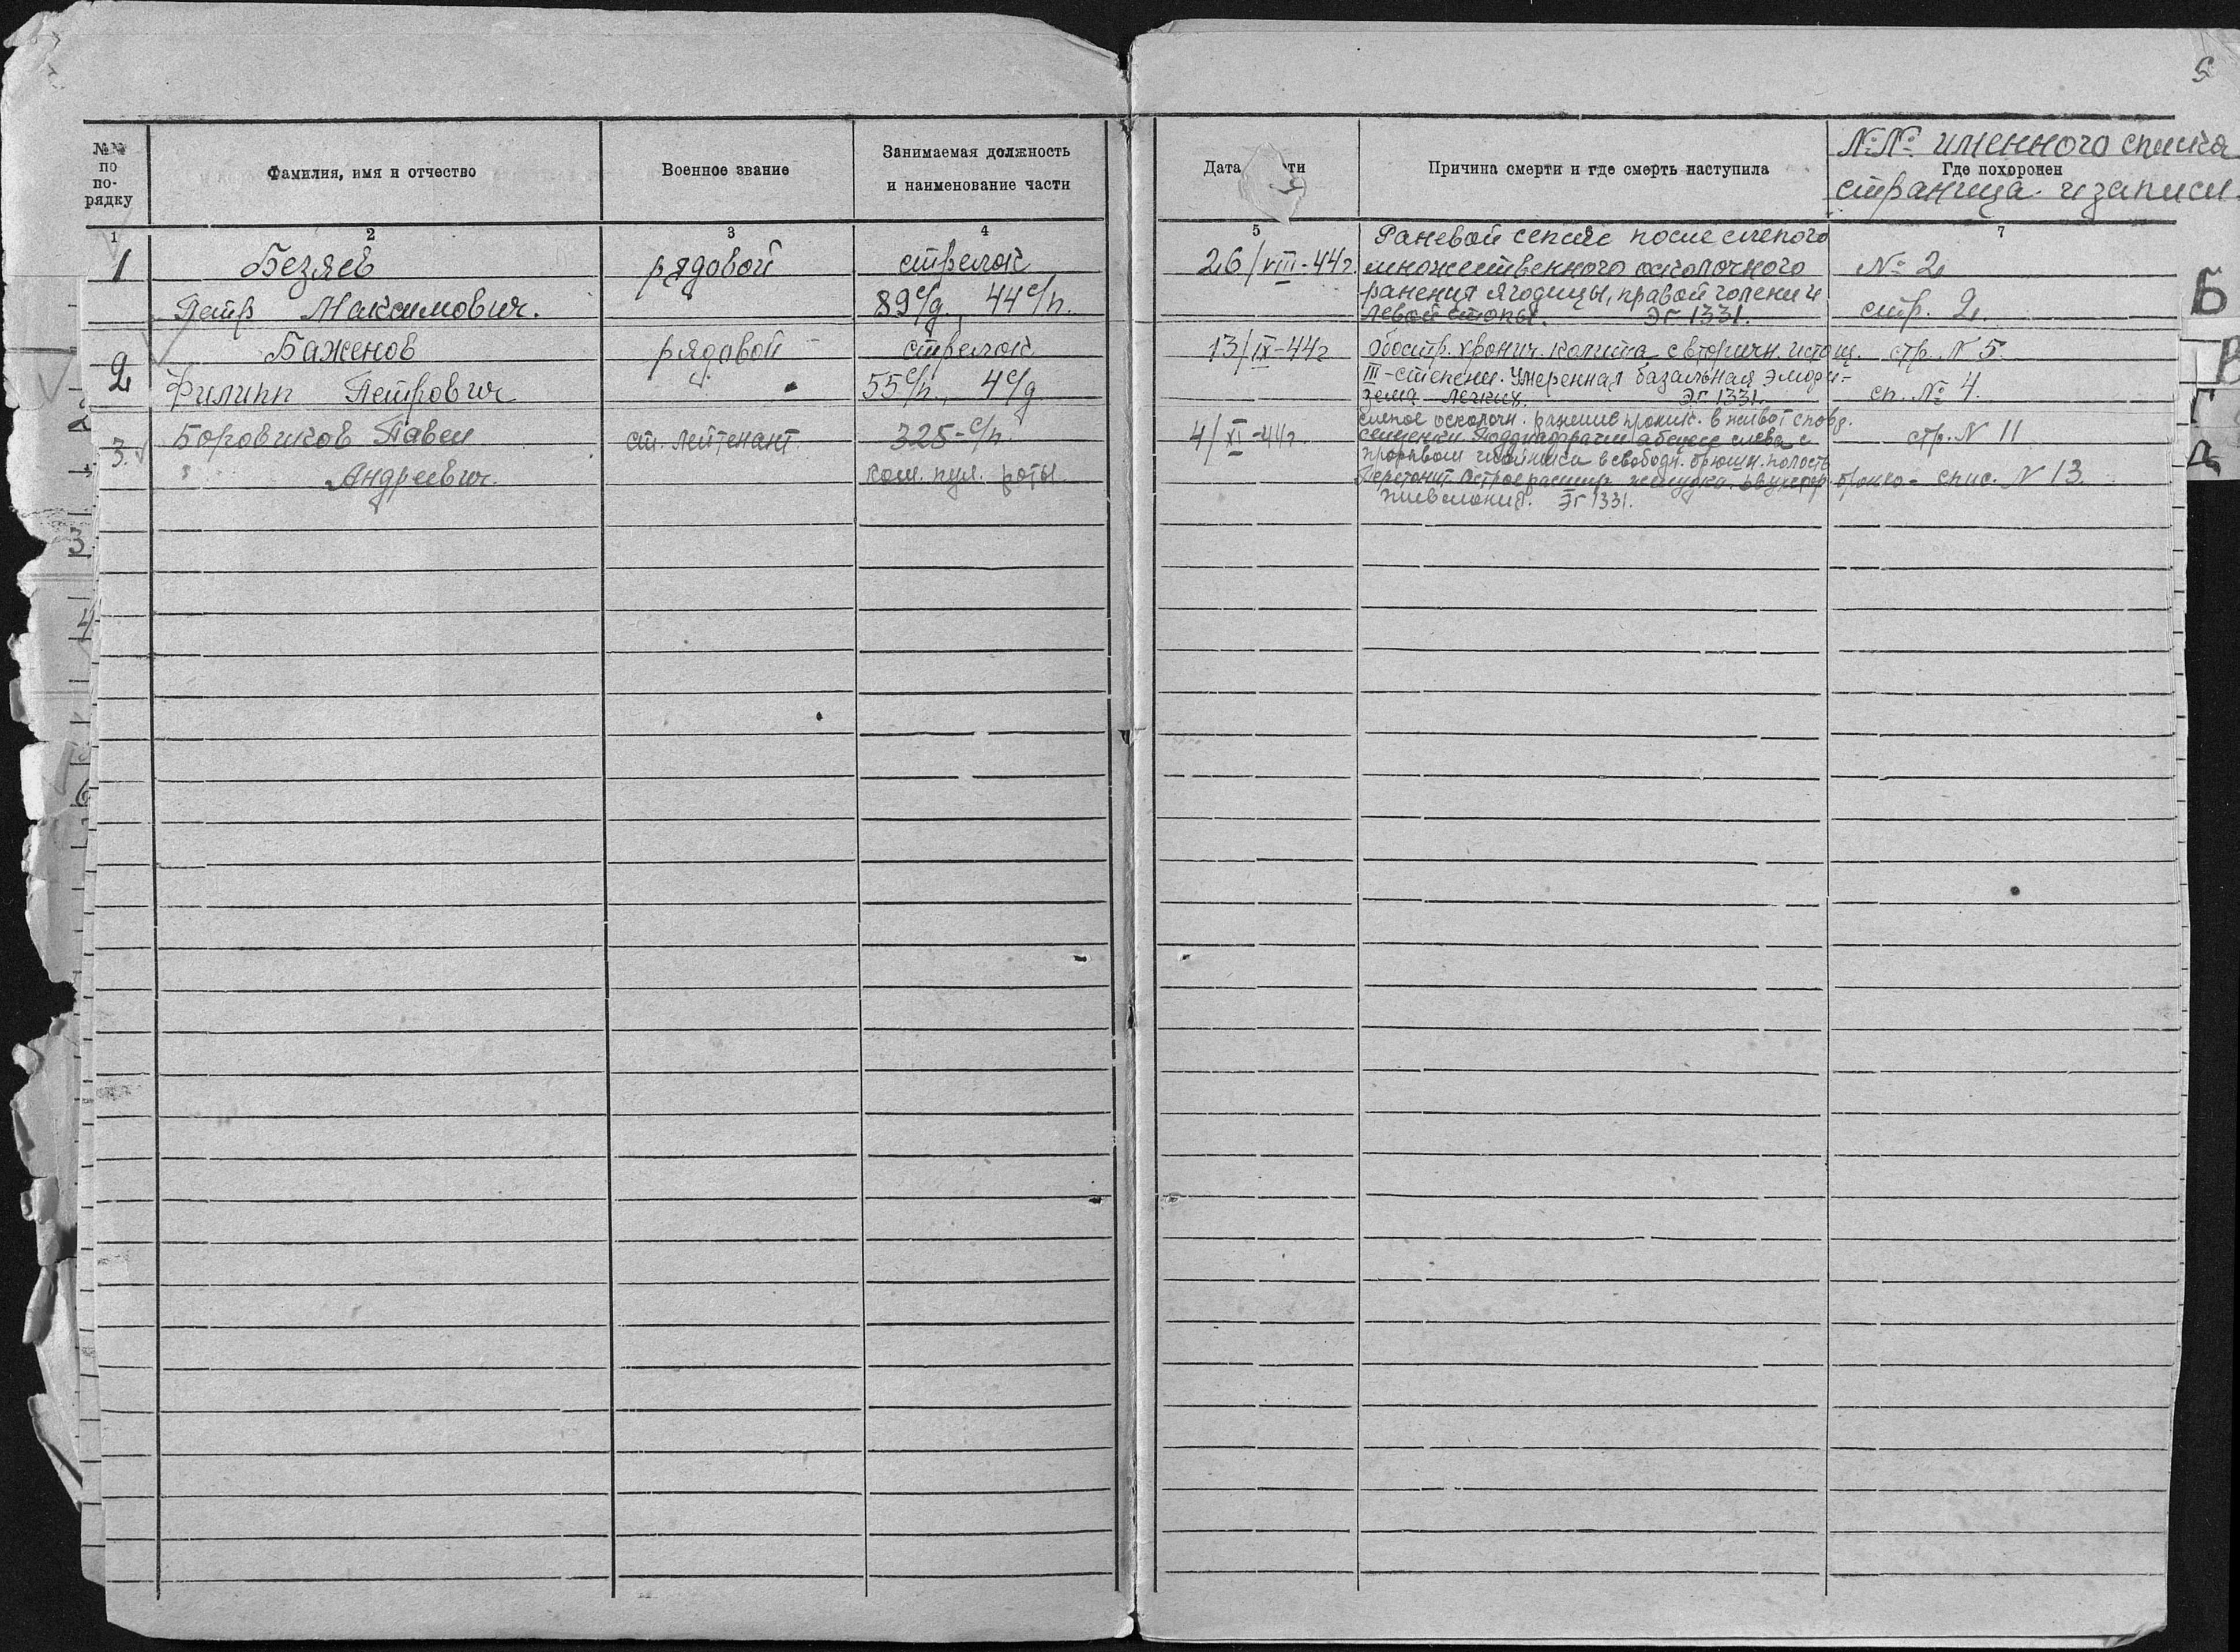 5
№№ по по- рядку
Фамилия, имя и отчество
Военное звание
Занимаемая должность и наименование части
Дата ти
Причина смерти и где смерть наступила
№№ именного списка
Где похоронен
страница и записи.
1 2 3 4 5 7
1 Безяев рядовой стрелок 26/VIII-44г. Раневой сепсис после слепого
Петр Максимович. 89 с/д, 44 с/п. множественного осколочного № 2
ранения ягодицы, правой голени и стр. 2.
левой стопы. ЭГ 1331.
2 Баженов рядовой стрелок 13/IX-44г обостр. хронич. колита с вторичн. истощ. стр. N 5.
Филипп Петрович 55 с/п., 4 с/д III-степени. Умеренная базальная эмфи- сп. № 4.
зема легких. ЭГ 1331.
3. Боровиков Павел ст. лейтенант 325-с/п 4/XI-44г. слепое осколочн. ранение проник. в живот с повр. стр. N 11
селезенки. Поддиафрагм. абсцесс слева с
Андреевич. ком. пул. роты прорывом гнойника в свободн. брюшн. полость
Перетонит. Острое расшир. желудка. бронхо- спис. N 13.
пневмония. ЭГ 1331.
Б
В
Г
Д
2
3
4
6